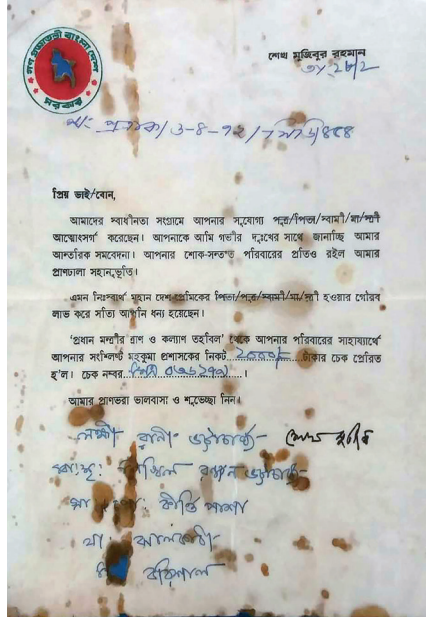 গণ প্রজাতন্ত্রী বাংলা দেশ
সরকার
শেখ মুজিবুর রহমান
প্রিয় ভাই/বোন,
আমাদের স্বাধীনতা সংগ্রামে আপনার সুযোগ্য পুত্র/পিতা/স্বামী/মা/স্ত্রী
আত্মোৎসর্গ করেছেন। আপনাকে আমি গভীর দুঃখের সাথে জানাচ্ছি আমার
আন্তরিক সমবেদনা। আপনার শোক-সন্তপ্ত পরিবারের প্রতিও রইল আমার
প্রাণঢালা সহানুভূতি।
এমন নিঃস্বার্থ মহান দেশ-প্রেমিকের পিতা/পুত্র/স্বামী/মা/স্ত্রী হওয়ার গৌরব
লাভ করে সত্যি আপনি ধন্য হয়েছেন।
'প্রধান মন্ত্রীর ত্রাণ ও কল্যাণ তহবিল' থেকে আপনার পরিবারের সাহায্যার্থে
আপনার সংশ্লিষ্ট মহকুমা প্রশাসকের নিকট ২০০০/- টাকার চেক প্রেরিত
হ'ল। চেক নম্বর
আমার প্রাণভরা ভালবাসা ও শুভেচ্ছা নিন।
লক্ষ্মী রানী ভট্টাচার্য্য শেখ মুজিব
রঞ্জন ভট্টাচার্য্য
কীর্ত্তি পাশা
ঝালকাঠী
বরিশাল